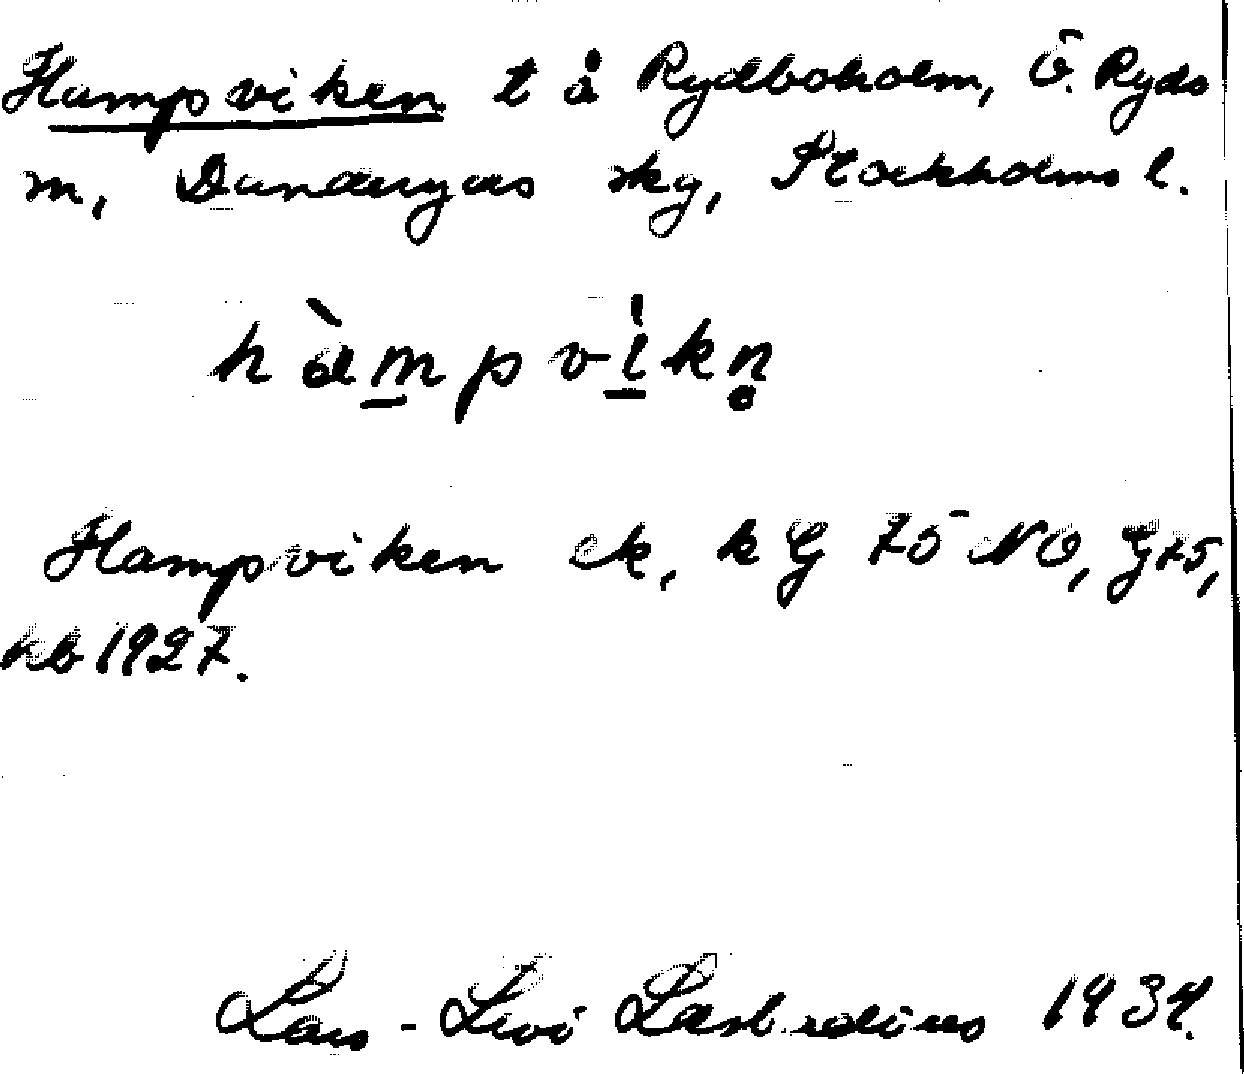 Hampviken t å Rydboholm, Ö. Ryds
sn, Danderyds skg, Stockholms l.
hàmpvìkn̥
Hampviken ek, kG 75 NO, G 75,
kb 1927.
Lars-Levi Læstadius 1934.